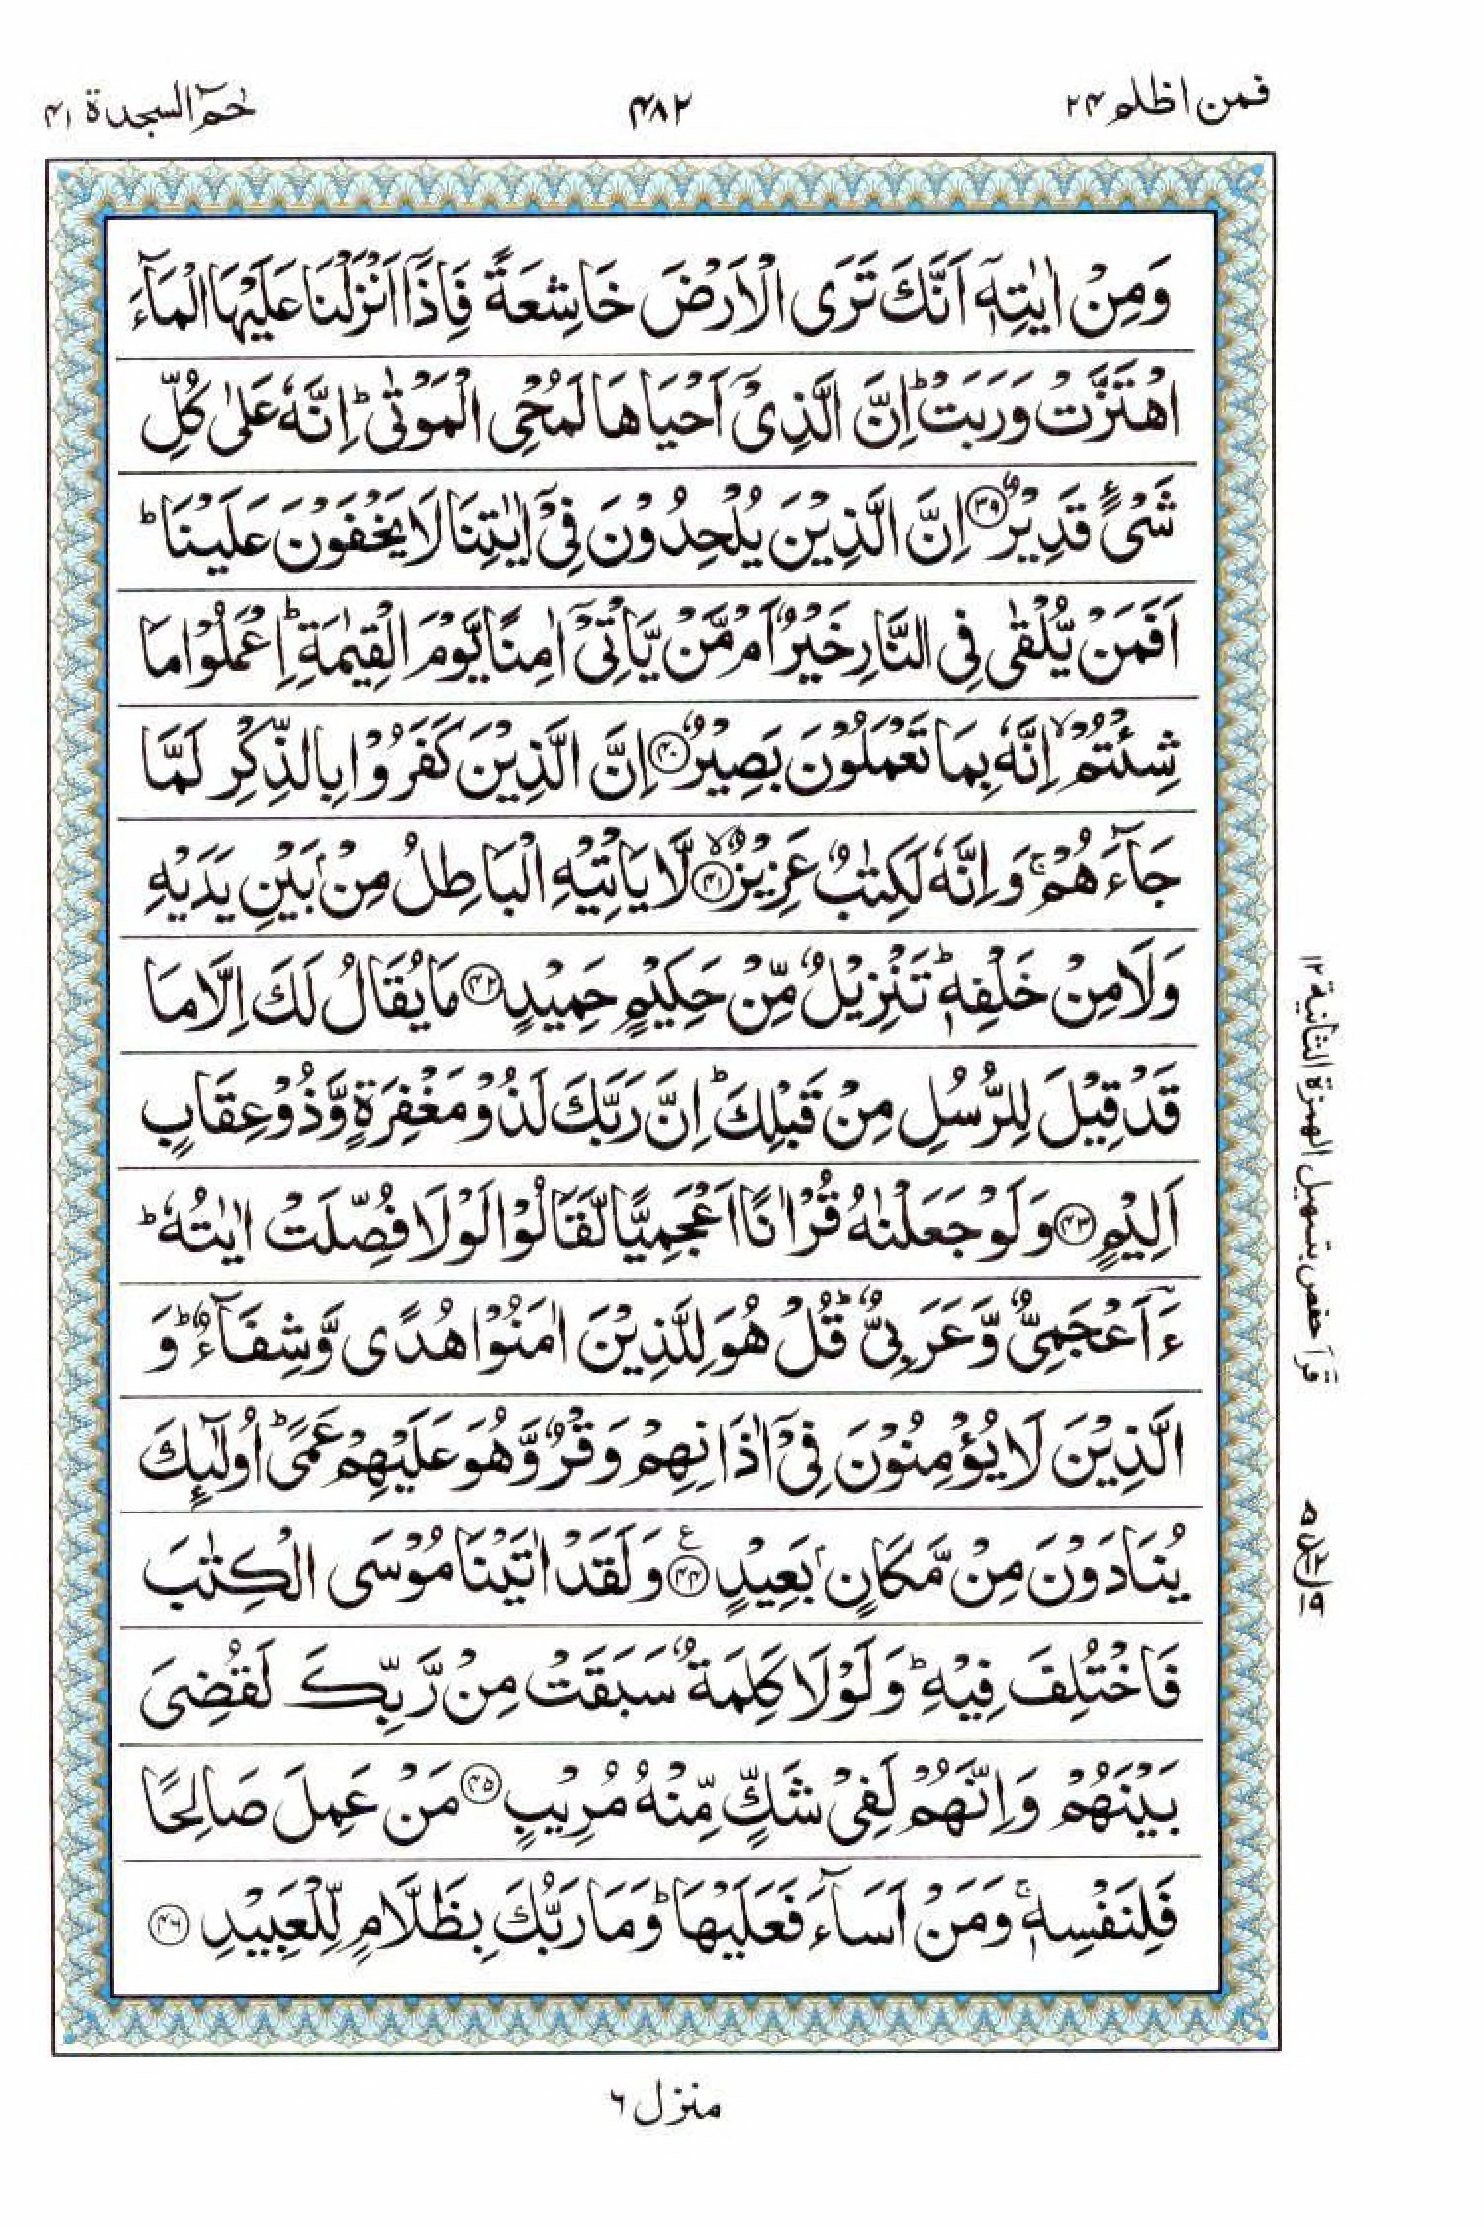 فمن اظلم ۲۴
۴۸۲
حٰمٓ السجدة ۴۱
وَمِنْ اٰيٰتِهٖٓ اَنَّكَ تَرَى الْاَرْضَ خَاشِعَةً فَاِذَآ اَنْزَلْنَا عَلَيْهَا الْمَآءَ
اهْتَزَّتْ وَرَبَتْ ؕ اِنَّ الَّذِیْۤ اَحْيَاهَا لَمُحْیِ الْمَوْتٰی ؕ اِنَّهٗ عَلٰی كُلِّ
شَیْءٍ قَدِيْرٌ ﴿۳۹﴾ اِنَّ الَّذِيْنَ يُلْحِدُوْنَ فِیْۤ اٰيٰتِنَا لَا يَخْفَوْنَ عَلَيْنَا ؕ
اَفَمَنْ يُّلْقٰی فِی النَّارِ خَيْرٌ اَمْ مَّنْ يَّاْتِیْۤ اٰمِنًا يَّوْمَ الْقِيٰمَةِ ؕ اِعْمَلُوْا مَا
شِئْتُمْ ۙ اِنَّهٗ بِمَا تَعْمَلُوْنَ بَصِيْرٌ ﴿۴۰﴾ اِنَّ الَّذِيْنَ كَفَرُوْا بِالذِّكْرِ لَمَّا
جَآءَهُمْ ۚ وَاِنَّهٗ لَكِتٰبٌ عَزِيْزٌ ۙ﴿۴۱﴾ لَّا يَاْتِيْهِ الْبَاطِلُ مِنْۢ بَيْنِ يَدَيْهِ
وَلَا مِنْ خَلْفِهٖ ؕ تَنْزِيْلٌ مِّنْ حَكِيْمٍ حَمِيْدٍ ﴿۴۲﴾ مَا يُقَالُ لَكَ اِلَّا مَا
قَدْ قِيْلَ لِلرُّسُلِ مِنْ قَبْلِكَ ؕ اِنَّ رَبَّكَ لَذُوْ مَغْفِرَةٍ وَّذُوْ عِقَابٍ
اَلِيْمٍ ﴿۴۳﴾ وَلَوْ جَعَلْنٰهُ قُرْاٰنًا اَعْجَمِيًّا لَّقَالُوْا لَوْلَا فُصِّلَتْ اٰيٰتُهٗ ؕ
ءَاَعْجَمِیٌّ وَّعَرَبِیٌّ ؕ قُلْ هُوَ لِلَّذِيْنَ اٰمَنُوْا هُدًی وَّشِفَآءٌ ؕ وَ
الَّذِيْنَ لَا يُؤْمِنُوْنَ فِیْۤ اٰذَانِهِمْ وَقْرٌ وَّهُوَ عَلَيْهِمْ عَمًی ؕ اُولٰٓئِكَ
يُنَادَوْنَ مِنْ مَّكَانٍۭ بَعِيْدٍ ﴿۴۴﴾ ع وَلَقَدْ اٰتَيْنَا مُوْسَی الْكِتٰبَ
فَاخْتُلِفَ فِيْهِ ؕ وَلَوْلَا كَلِمَةٌ سَبَقَتْ مِنْ رَّبِّكَ لَقُضِیَ
بَيْنَهُمْ ؕ وَاِنَّهُمْ لَفِیْ شَكٍّ مِّنْهُ مُرِيْبٍ ﴿۴۵﴾ مَنْ عَمِلَ صَالِحًا
فَلِنَفْسِهٖ ۚ وَمَنْ اَسَآءَ فَعَلَيْهَا ؕ وَمَا رَبُّكَ بِظَلَّامٍ لِّلْعَبِيْدِ ﴿۴۶﴾
قرأ حفص بتسهيل الهمزة الثانية ۱۲
منزل ۶